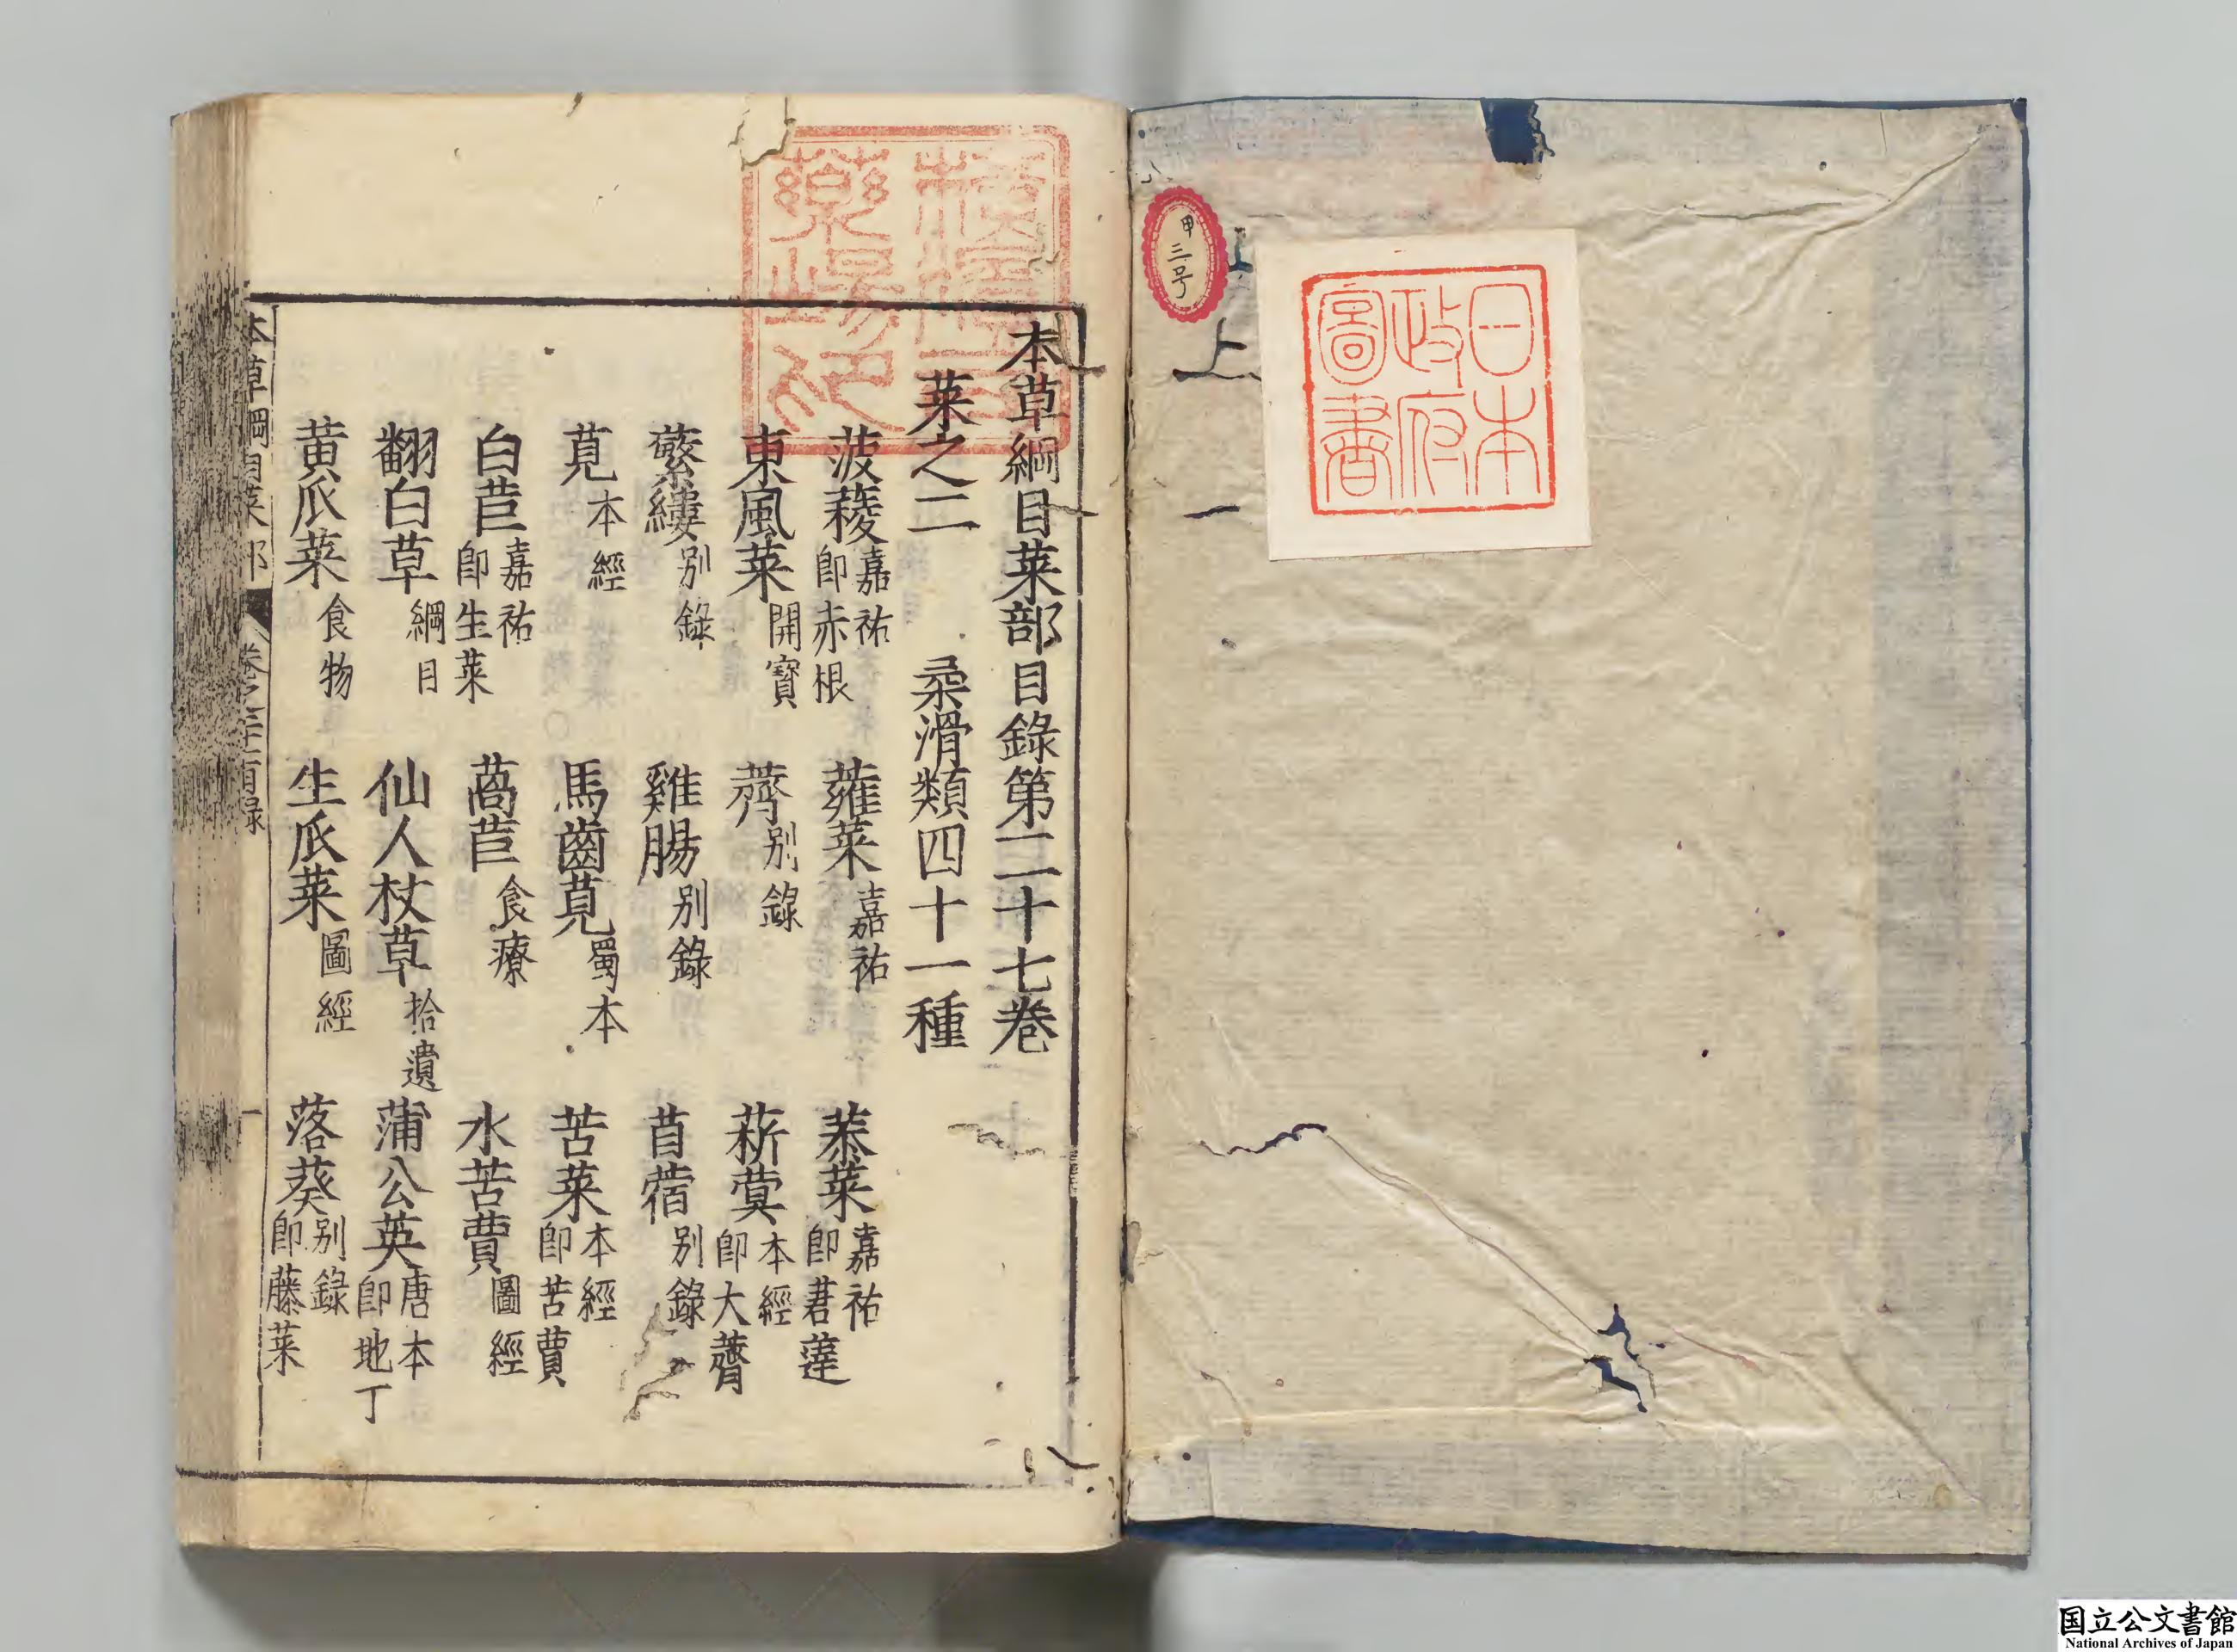 日本
政府
圖書
甲
三号
上
一
本草綱目菜部目錄第二十七卷
菜之二 柔滑類四十一種
菠薐嘉祐即赤根 蕹菜嘉祐 菾菜嘉祐即莙薘
東風菜開寶 薺别錄 菥蓂本經即大薺
蘩縷别錄 雞腸别錄 苜蓿别錄
莧本經 馬齒莧蜀本 苦菜本經即苦蕒
白苣嘉祐即生菜 萵苣食療 水苦蕒圖經
翻白草綱目 仙人杖草拾遺 蒲公英唐本即地丁
黄瓜菜食物 生瓜菜圖經 落葵别錄即藤菜
本草綱目菜部 卷之二十七目録 一
国立公文書館
National Archives of Japan